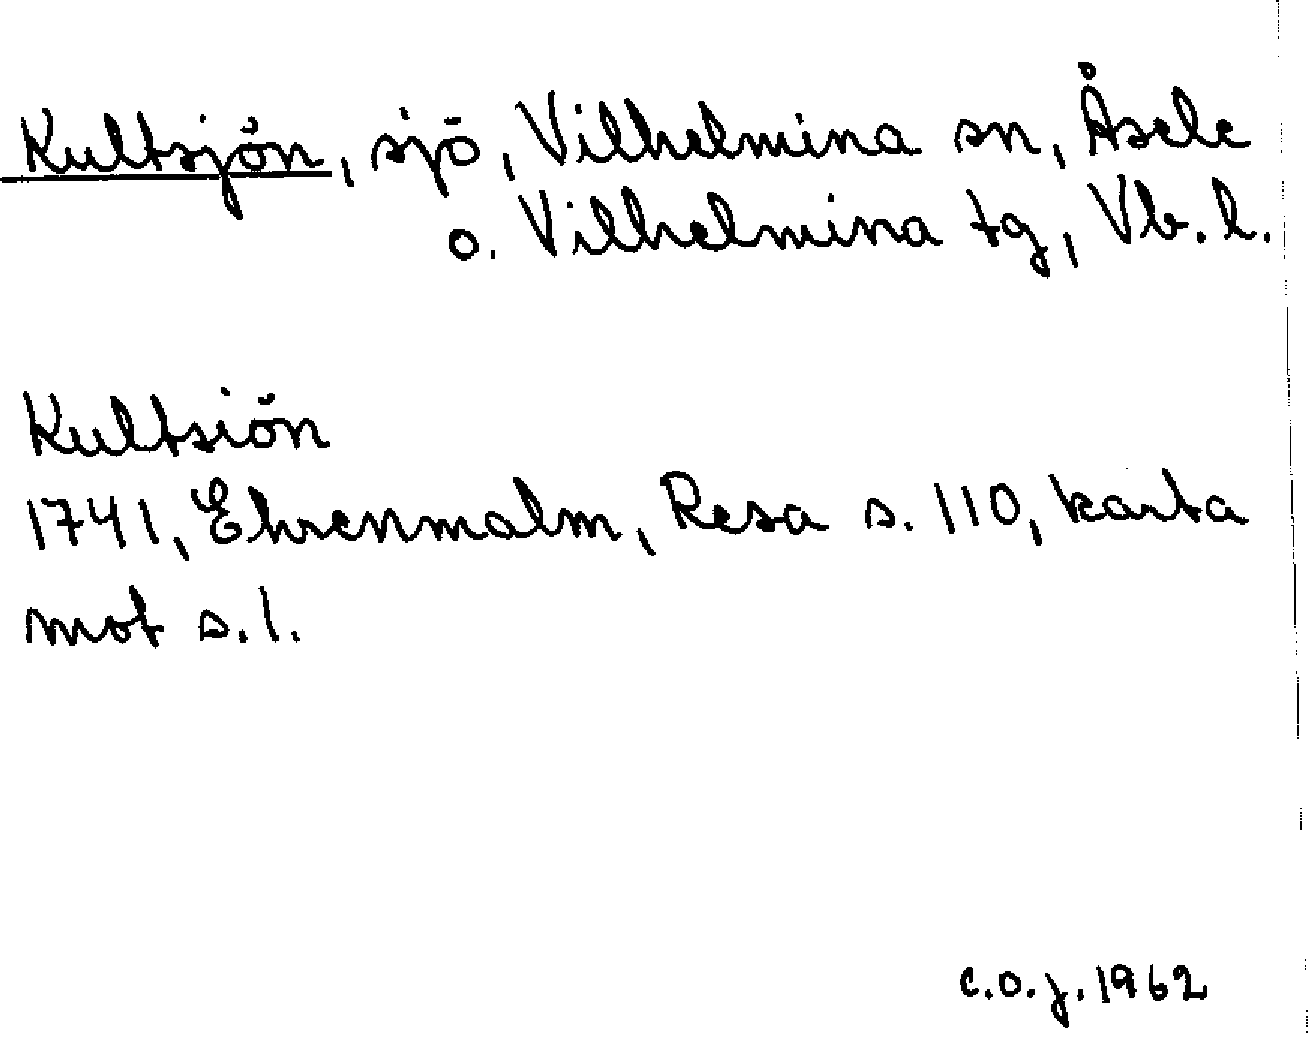 Kultsjön, sjö, Vilhelmina sn, Åsele
o. Vilhelmina tg, Vb. l.
Kultsiön
1741, Ehrenmalm, Resa s. 110, karta
mot s. 1.
C.O.J. 1962